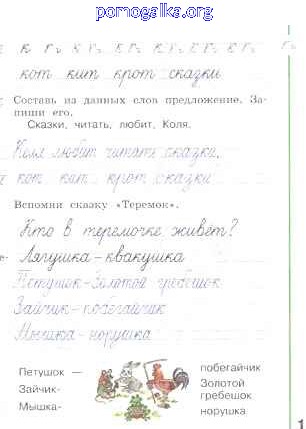 pomogalka.org
кот кит крот сказки
Составь из данных слов предложение. За-
пиши его.
Сказки, читать, любит, Коля.
Коля любит читать сказки.
кот кит крот сказки
Вспомни сказку «Теремок».
Кто в теремочке живёт?
Лягушка-квакушка
Петушок-Золотой гребешок
Зайчик-побегайчик
Мышка-норушка
Петушок — побегайчик
Зайчик- Золотой гребешок
Мышка- норушка
1